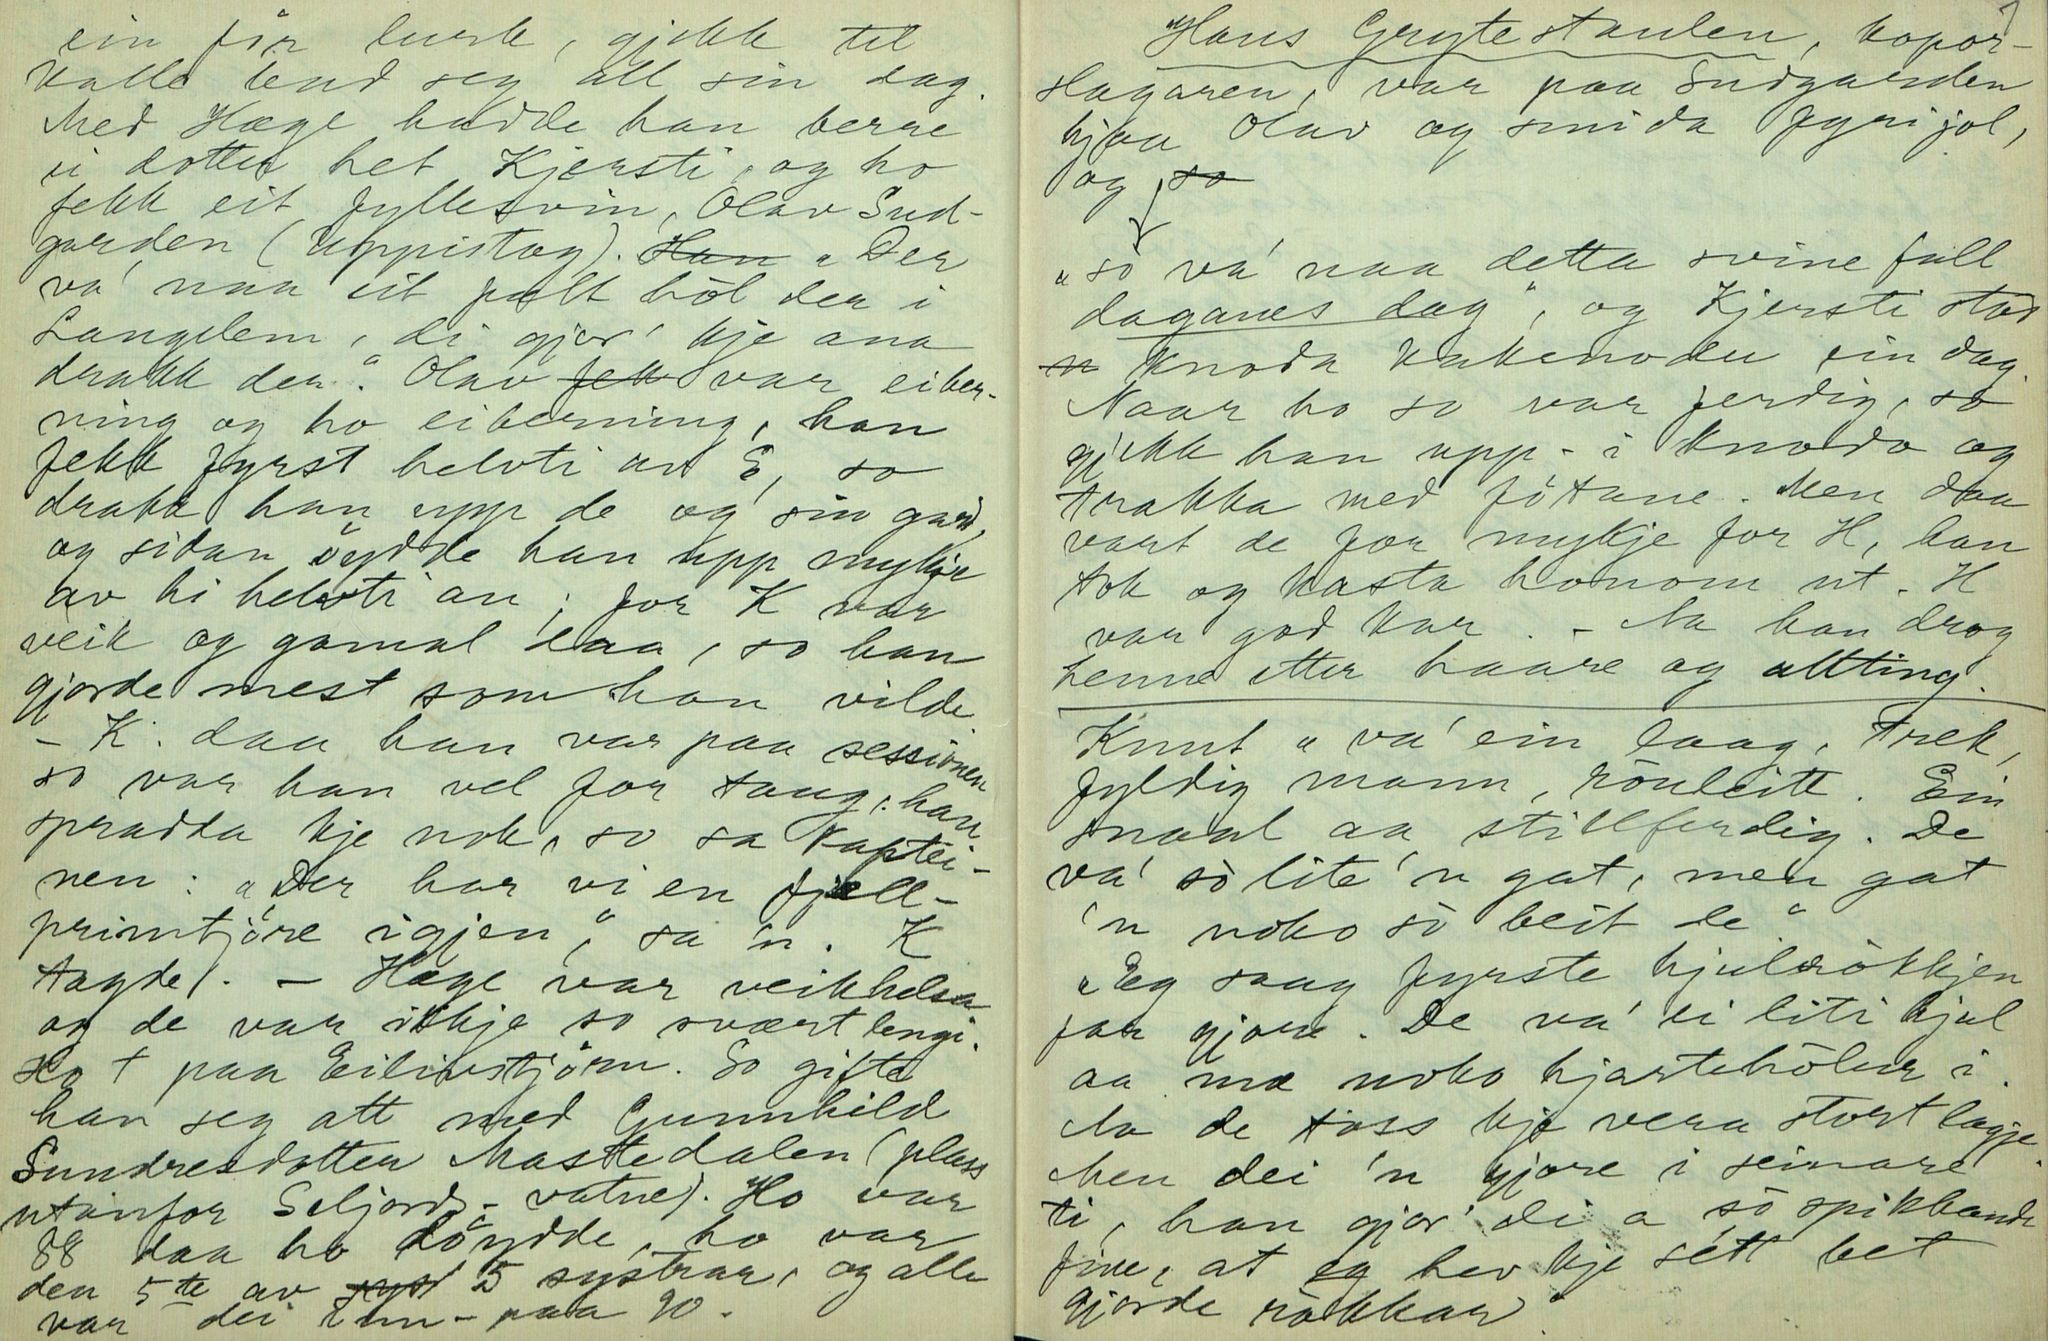 ein får lurk, gjekk til
Kalle lend seg all sin dag.
Med Hæge hadde han berre
ei dotter het Kjersti, og ho
fekk eit fyllesvin, Olav Sud-
garden (Uppistog). Han „Der
va' naa eit palt hòl der i
Langelem, di gjor' kje ana
drakk der." Olav fek var eiber-
ning og ho eiberning, han
fekk fyrst helvti av E, so
drakk han upp de og sin gard,
og sidan øydde han upp mykje
av hi helvti an; for K var
veik og gamal daa, so han
gjorde mest som han vilde
– K. daa han var paa sessionen
so var han vel for taug, han
spradda kje nok, so sa Kaptei-
nen: „Der har vi en fjell-
primtjøre igjen," sa 'n. K
tagde. – Hæge var veikhelsa
og de var ikkje so svært lengi.
Ho † paa Eilivstjørn. So gifte
han seg att med Gunnhild
Sundresdotter Mastedalen (plass
utanfor Seljords-vatne). Ho var
88 daa ho døydde, ho var
den 5te av syst 5 systrar, og alle
var dei inn-paa 90.
7
Hans Grytestaulen, kopor-
slagaren, var paa Sudgarden
hjaa Olav og smida fyri jol,
og so
„sò va' naa detta svine full
daganes dag", og Kjersti stod
n knoda kakenoden ein dag.
Naar ho so var ferdig, so
gjekk han upp-i knoda og
trakka med føtane. Men daa
vart de for mykje for H, han
tok og kasta honom ut. H
var god kar. – Na han drog
henne etter haare og allting.
Knut „va' ein laag, trek,
fyldig mann, rónleitt. Ein
snaal aa stillferdig. De
va' sò lite 'n gat, men gat
'n noko sò beit de."
„Eg saag fyrste hjulrøkkjen
far gjore. De va' ei liti hjul
aa mæ noko hjartehòlur i.
Na de tòss kje vera stort lagje.
Men dei 'n gjore i seinare
ti, han gjor' di a sò spikkande
fine, at eg hev kje sétt bet
gjorde rokkar."